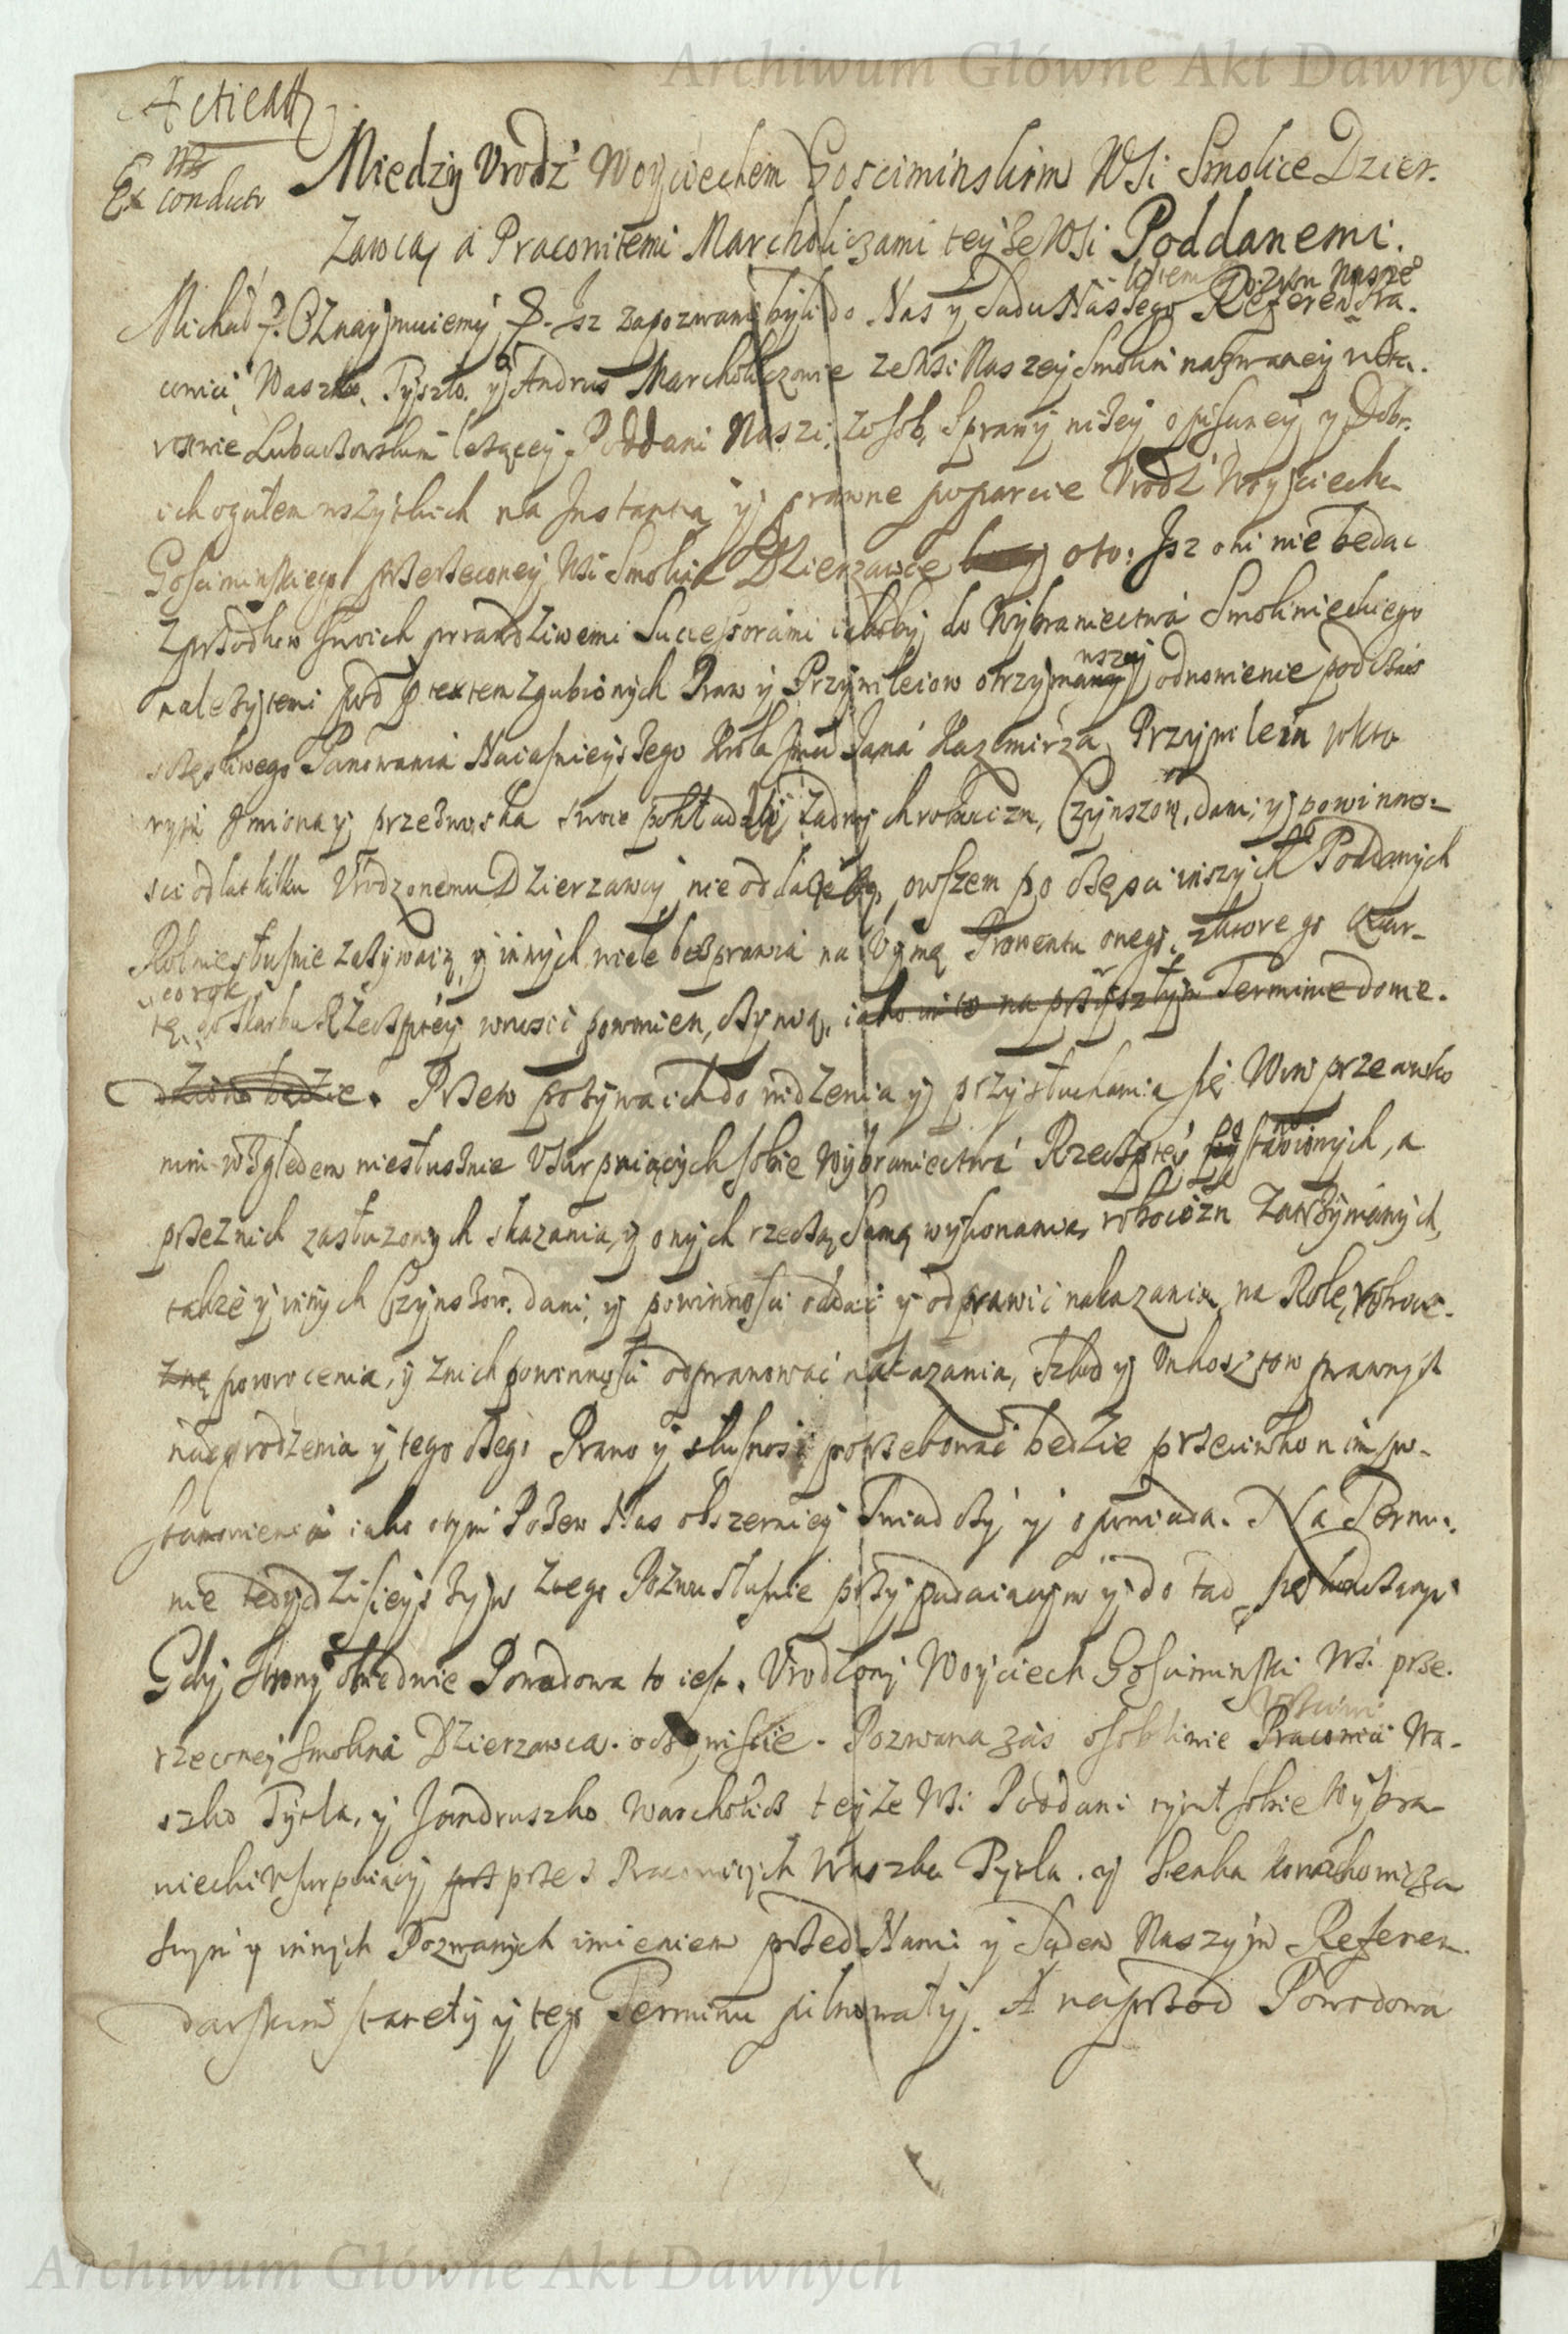 Archiwum Główne Akt Dawnych
Ex conductu
Miedzy Vrodz Woyciechem Gosciminskim Wsi Smolice Dzier.
zawcą á Pracowitemi Marcholiczami teyże Wsi Poddanemi.
Pozwu Nasze
Michał Oznaymuiemy Isz zapozwani byli do Nas y Sądu Naszego Referendra.
cowici Waszko, y Andrus Marcholiczowie ze Wsi Naszey Smolin nazwaney w Sta.
rostwie Lubaczowskim leżącey Poddani Naszi, z osob, Sprawy niżey opisaney y Dobr.
ich ogułem wszytkich na Instantią y prawne poparcie Vrodz Woyciecha
Gosciminskiego przerzeconey Wsi Smolina Dzierzawce oto: Isz oni nie będąc
z przodkow swoich prawdziwemi Successorami iakoby do Wybraniectwá Smolinieckiego
należytemi pod p̱textem zgubionych Praw y Przywileiow otrzymawszy odnowienie podczas
szczęśliwego Panowania Naiasnieyszego Krola Jmći Jana Kazimirza Przywileiu, w kto
rym Imiona y przezwiska swoie pokładali żadnych robocizn, Czynszow, dani, y powinno:
sci od lat kilku Vrodzonemu Dzierzawcy nie oddaią, owszem po części inszych Poddanych
Rol niesłusnie zażywaią, y innych wiele bezprawia na Vymę Prowentu onego, z ktorego quar-
co rok
tę do Skarbu Rzeczptey wnosić powinien, czynią, iako to na przyszłym Terminie dowie.
dziono będzie. Przeto pozywa ich do widzenia y przysłuchania się Win przeciwko
nim względem niesłusznie Vsurpuiących sobie Wybraniectwá Rzeczptey postawionych, a
przez nich zasłużonych skazania, y onych rzeczą samą wykonania, robocizn zatrzymanych,
także y innych Czynszow, dani, y powinnosci oddać y odprawić nakazania, na Rolę
powrocenia, y z nich powinnosci odprawować nakazania, Szkod y Vnkosztow prawnych
nadgrodzenia y tego czego Prawo y słusnosć potrzebować będzie przeciwko nim po-
stanowienia iako o tym Pozew Nas obszerniey Swiadczy y opowiada. Na Termi:
nie tedy dzisieyszym z tego Pozwu słusnie przypadaiącym y do tąd
Gdy Strony obiedwie Powodowa to iest. Vrodzony Woyciech Gosciminski Wsi prze.
rzeconey Smolina Dzierzawca. oczewiscie. Pozwana zás osobliwie Pracowici Wa-
szko Tycła, y Jandruszko Warcholicz teyże Wsi Poddani tytuł sobie Wybra
niecki Vsurpuiący przez Pracowitych Waszka Tycła. y Senka
swym y innych Pozwanych imieniem przed Nami y Sądem Naszym Referen.
darskim staneły y tego Terminu pilnowały. A naprzod Powodowa
Archiwum Główne Akt Dawnych